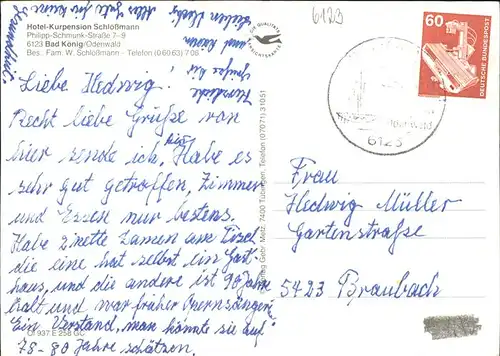 6123
Hotel-Kurpension Schloßmann
Philipp-Schmunk-Straße 7-9
6123 Bad König/Odenwald
Bes. Fam. W. Schloßmann · Telefon (06063) 7 06
Liebe Hedwig!
Recht liebe Grüße von
hier sende ich Dir, Habe es
sehr gut getroffen, Zimmer
und Essen nur bestens.
Habe 2 nette Damen am Tisch
die eine hat selbst ein Gast-
haus, und die andere ist 90 Jahre
halt und war früher Opernsängerin
Ein Verstand, man könnte sie auf
78-80 Jahre schätzen.
Herzliche
Grüße
und
lieben
Alles Gute für
Ö 937 E 258 GC
Gebr. Metz, 7400 Tübingen, Telefon (07071) 31051
60
DEUTSCHE BUNDESPOST
Odenwald
6123
Frau
Hedwig Müller
Gartenstraße
5423 Braubach